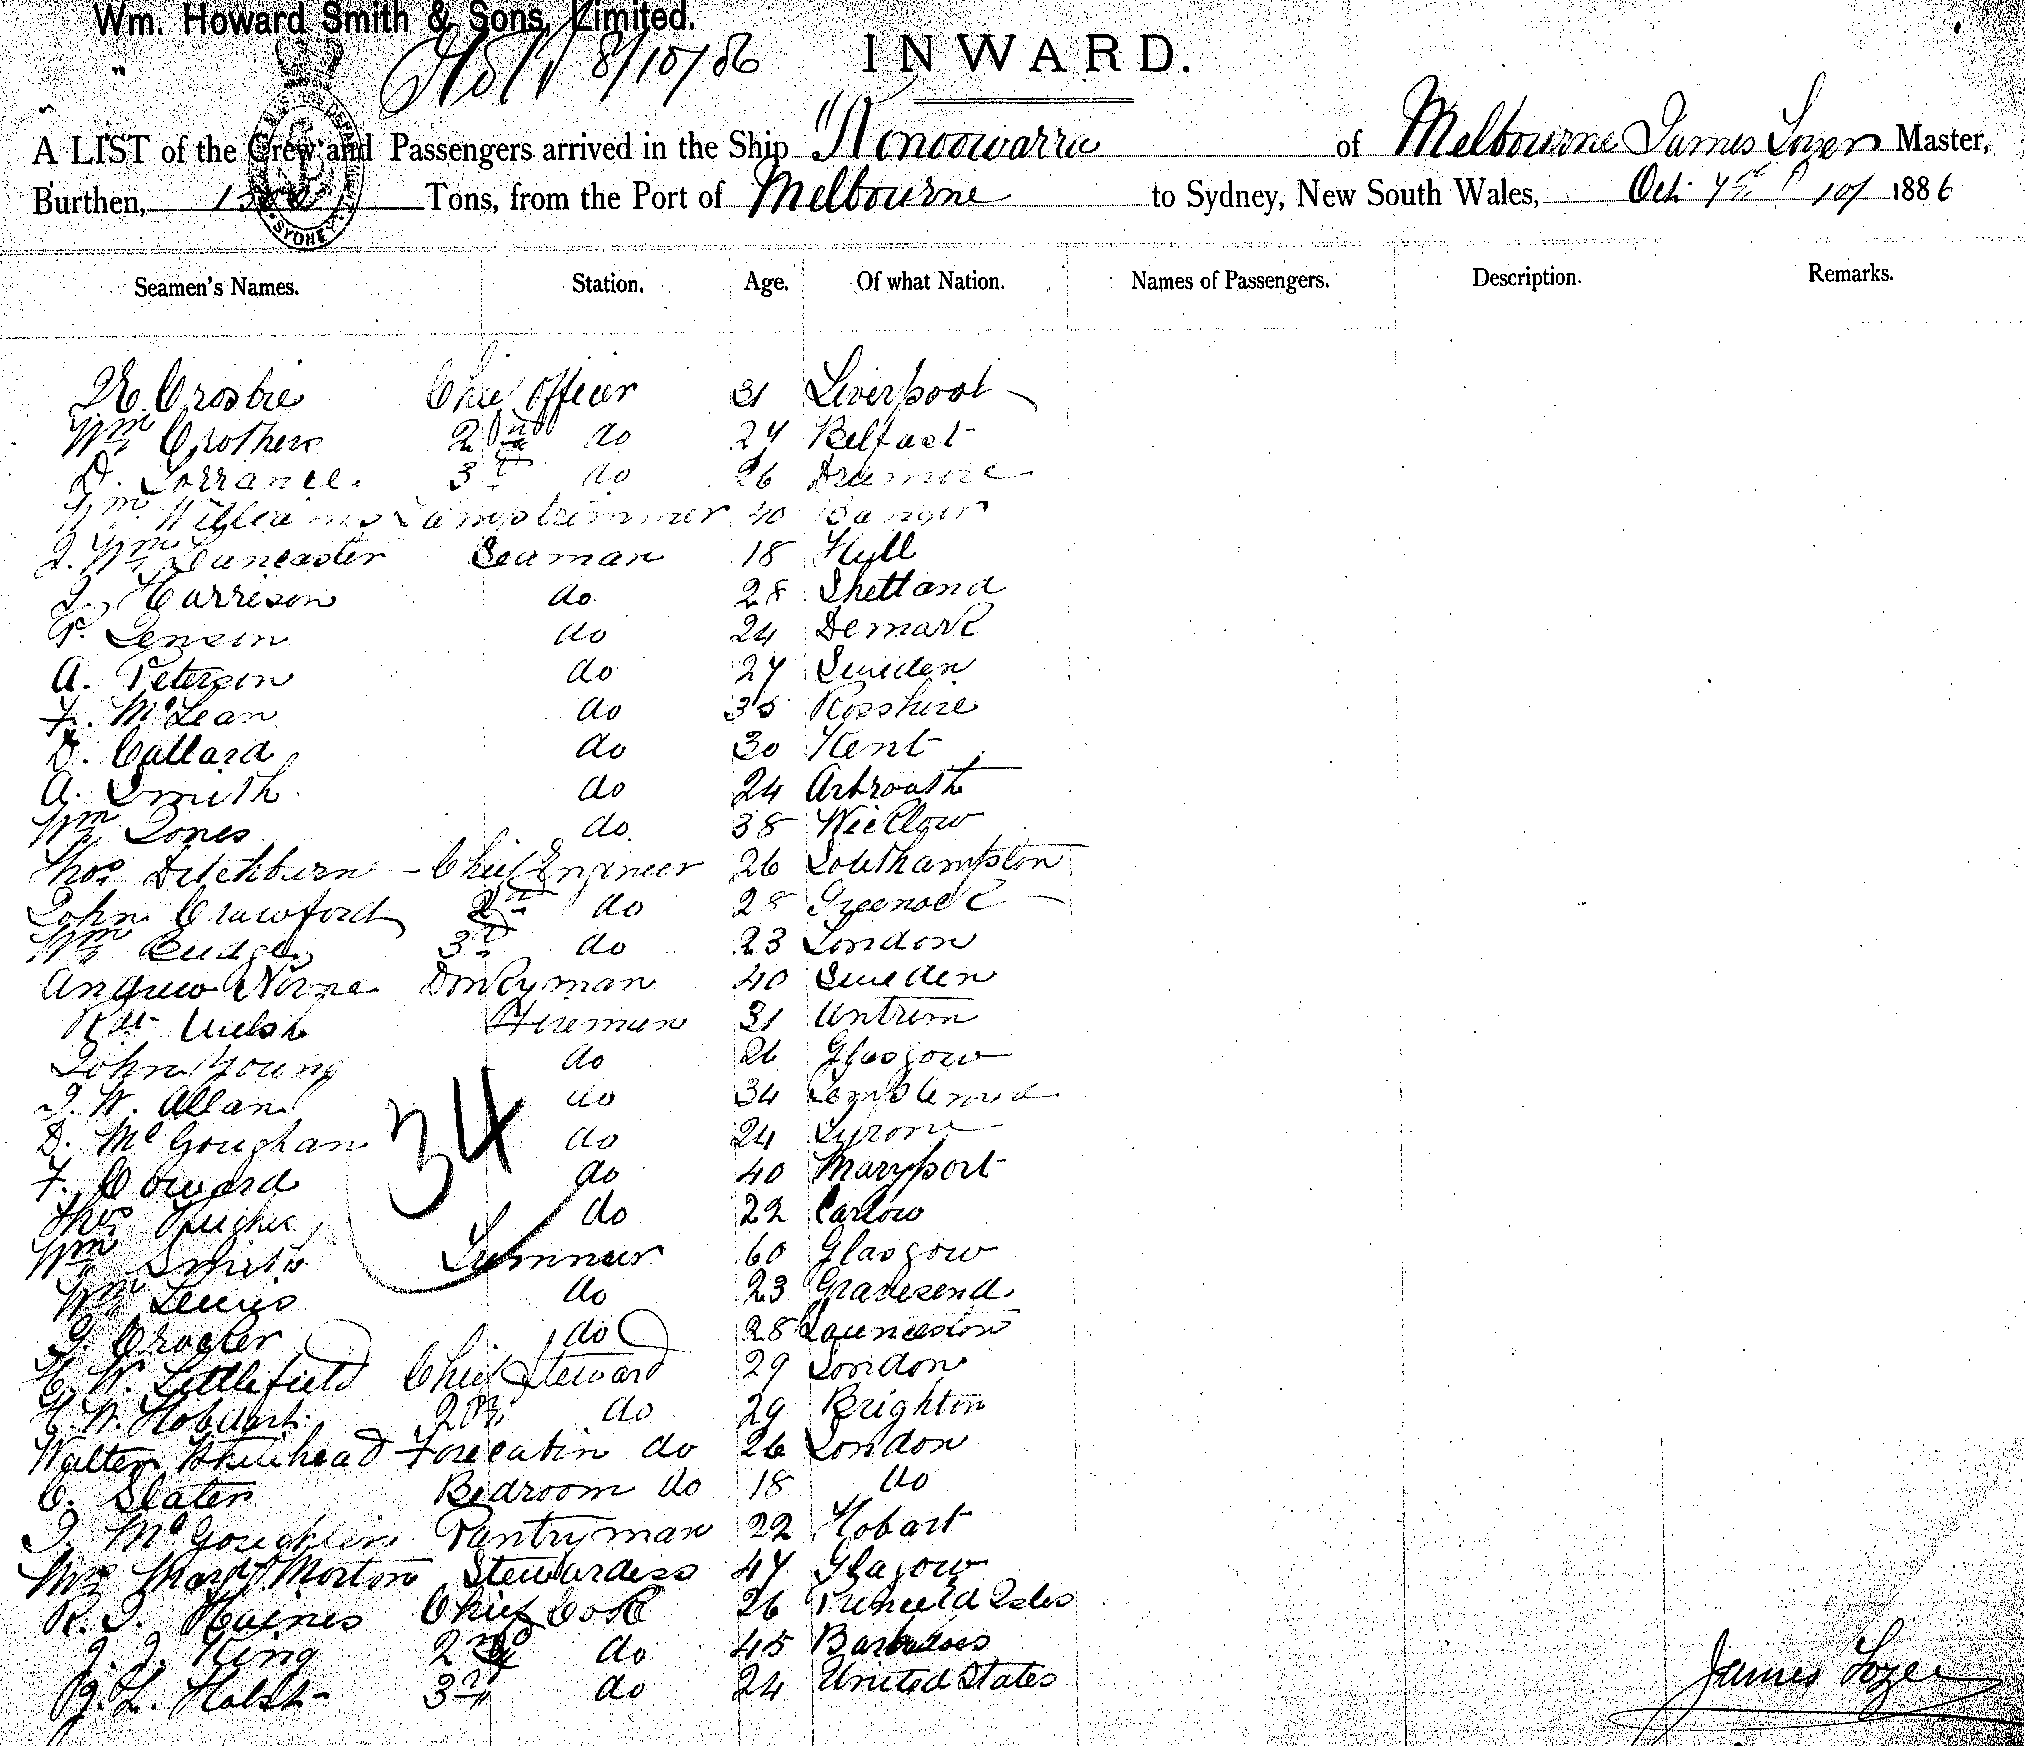 Wm. Howard Smith & Sons, Limited.
" 8/10/86
INWARD.
A LIST of the Crew and Passengers arrived in the Ship "Konoowarra of Melbourne James Lozer Master,
Burthen, Tons, from the Port of Melbourne to Sydney, New South Wales, Oct 1886
SYDNEY
Seamen's Names. Station. Age. Of what Nation. Names of Passengers. Description. Remarks.
Crosbie Chie Officer 31 Liverpool
Wm Crothers 2nd do 27 Belfast
D. Torrance. 3d do 26 Dremore
Wm Williams Lamptrimmer 40 Bangor
J. Wm Duncaster Seaman 18 Hull
J. Harrison do 28 Shetland
P. Jensin do 24 Demark
A. Peterson do 27 Sweden
F. McLean do 35 Rosshire
D. Callard do 30 Kent
A. Smith do 24 Arbroath
Wm Jones do 38 Wicklow
Thos Ditchburn Chief Engineer 26 Southampton
John Crawford 2nd do 28 Greenock
Wm Budge 3d do 23 London
Andrew Norne Donkyman 40 Sweden
Rbt Welsh Fireman 31 Antrim
John Young do 26 Glasgow
J. W. Allan do 34
D. McGoughan do 24 Tyrone
34
F. Coward do 40 Maryport
Thos Hughes do 22 Carlow
Wm Smith Trimmer 60 Glasgow
Wm Lewis do 23 Gravesend
J. Crocker do 28 Launceston
W. Littlefield Chief Steward 29 London
W. Hobdart 2nd do 29 Brighton
Walter Whitehead Forecabin do 26 London
C. Slater Bedroom do 18 do
J. McGoughlin Pantryman 22 Hobart
Mrs Mary Morton Stewardess 47 Glagow
R. J. Haines Chief Cook 26
J. J. King 2nd do 45 Barbadoes
L. Holst 3rd do 24 United States
James Lozer